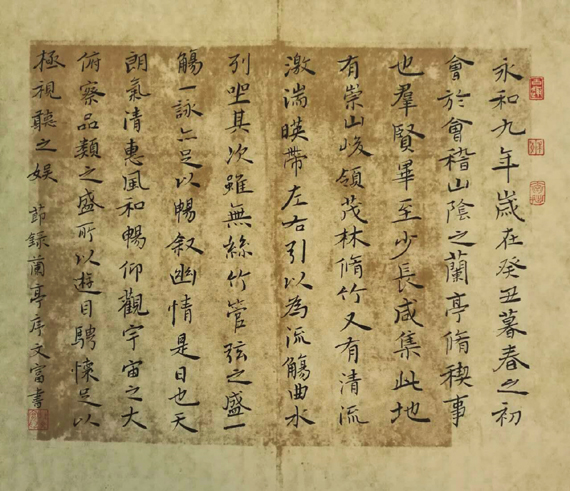 永和九年歲在癸丑暮春之初
會於會稽山陰之蘭亭脩稧事
也羣賢畢至少長咸集此地
有崇山峻領茂林脩竹又有清流
激湍暎帶左右引以為流觴曲水
列坐其次雖無絲竹管弦之盛一
觴一詠亦足以暢叙幽情是日也天
朗氣清惠風和暢仰觀宇宙之大
俯察品類之盛所以遊目騁懷足以
極視聽之娱 節錄蘭亭序文富書